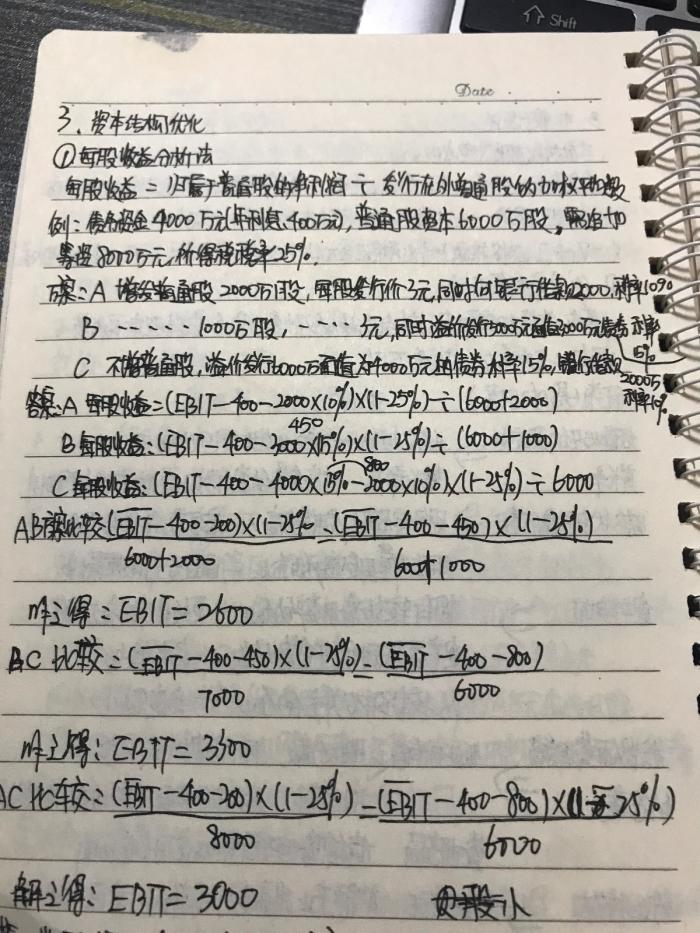 Shift
Date
3、资本结构优化
①每股收益分析法
每股收益 = 归属于普通股的净利润 ÷ 发行在外普通股的加权平均数
例：债务资金4000万元(年利息400万元)，普通股资本6000万股，需追加
筹资8000万元，所得税税率25%.
方案：A 增发普通股2000万股，每股发行价3元，同时向银行借款2000，利率10%
B ······ 1000万股，····· 元，同时溢价发行 万面值3000万元债券 利率
15%
C 不增普通股，溢价发行6000万面值为4000万元的债券 利率15%，银行借款
2000万
利率10%
答案：A 每股收益=(EBIT-400-2000×10%)×(1-25%)÷(6000+2000)
450
B每股收益：(EBIT-400-3000×15%)×(1-25%)÷(6000+1000)
800
C每股收益：(EBIT-400-4000×15%-2000×10%)×(1-25%)÷6000
AB 比较(EBIT-400-200)×(1-25% = (EBIT-400-450)×(1-25%)
6000+2000 6000+1000
解之得：EBIT=2600
BC 比较=(EBIT-400-450)×(1-25%) = (EBIT-400-800)
7000 6000
解之得：EBIT=3300
AC比较=(EBIT-400-200)×(1-25%) = (EBIT-400-800)×(1-25%)
8000 6000
解之得：EBIT=3000